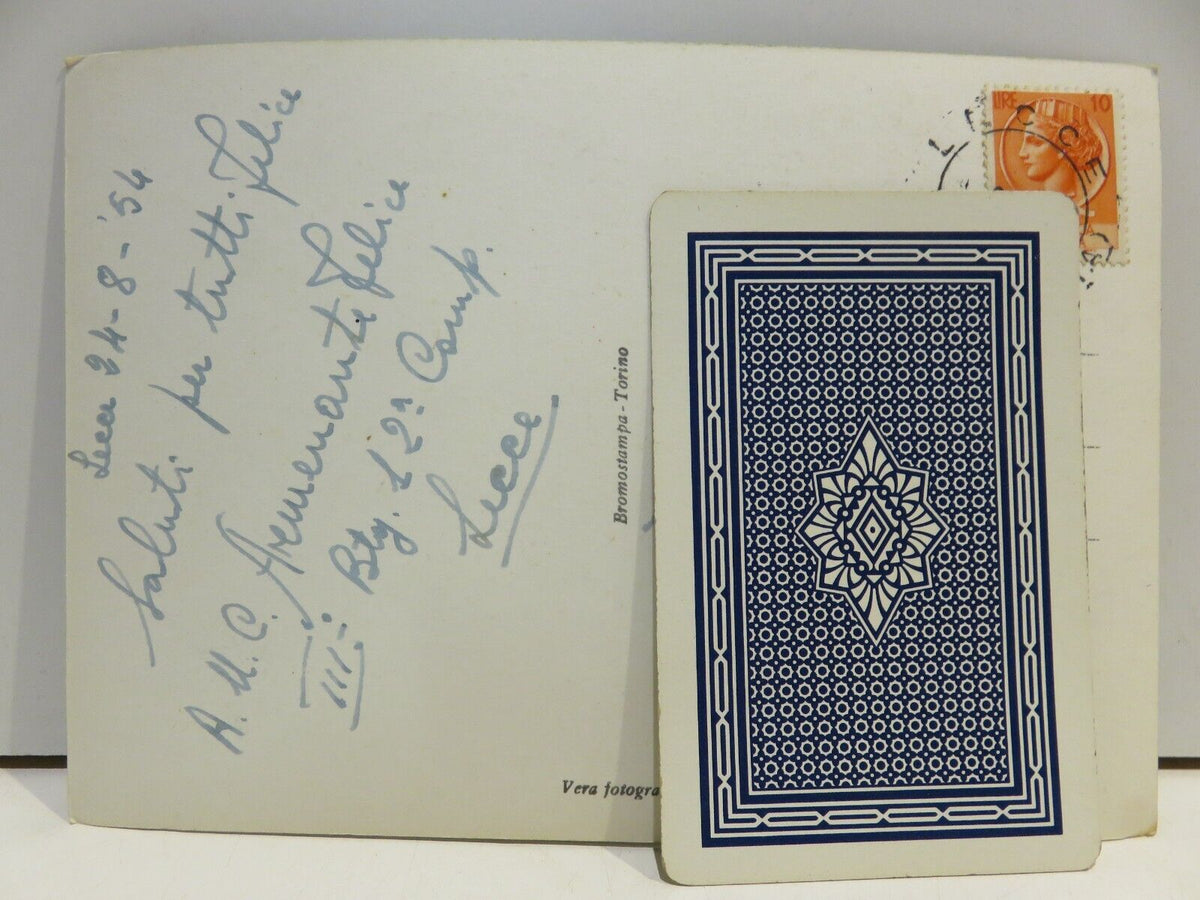 Lecce 24-8-'54
Saluti per tutti Felice
A. U. C. Felice
III: Btg. 2ª Comp.
Lecce
Bromostampa - Torino
Vera fotogra
LIRE 10
LECCE